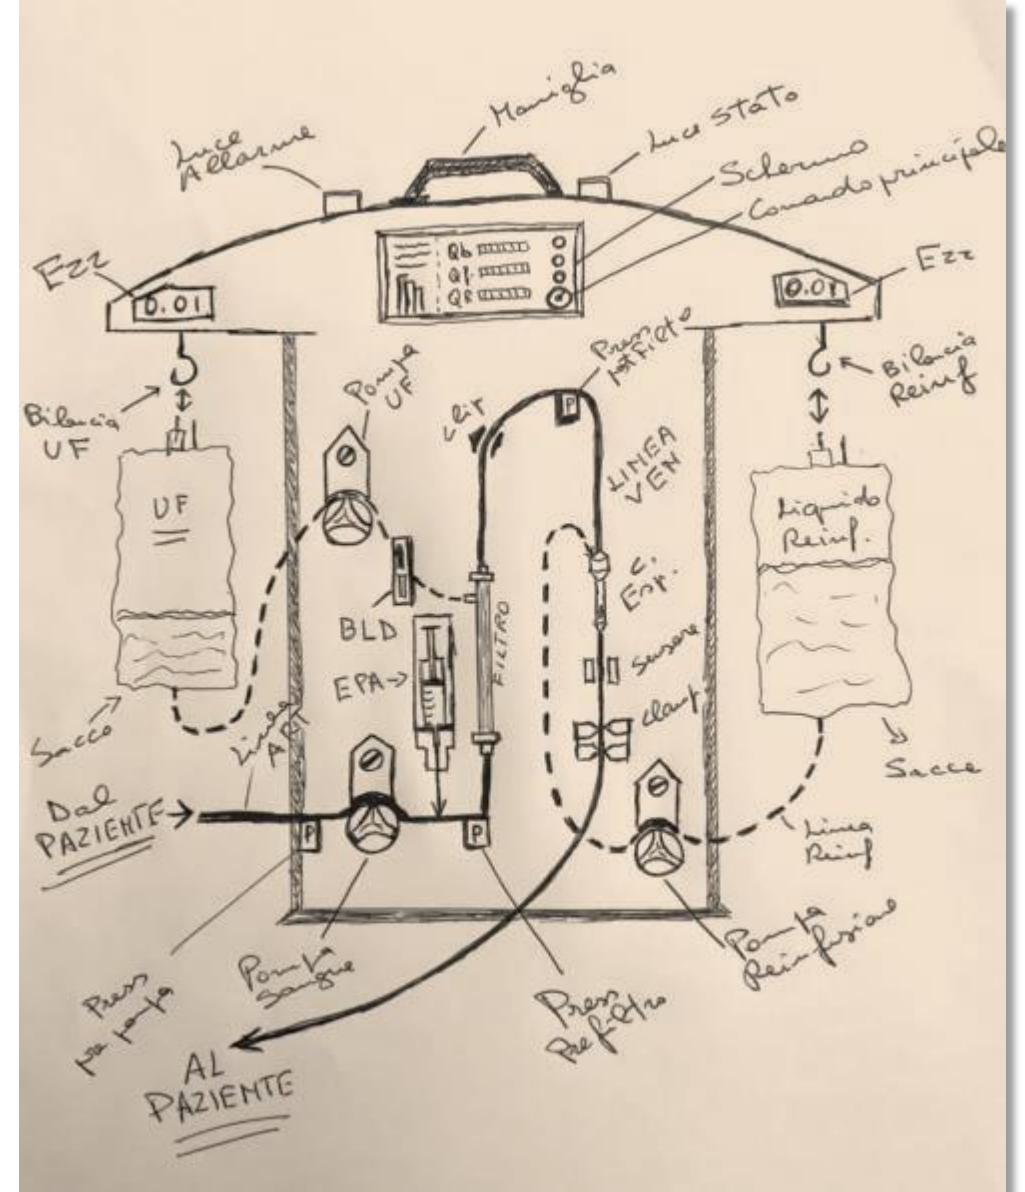 Maniglia
Luce
Allarme
Luce Stato
Schermo
Comando principale
Ezz
0.01
Qb
Qf
QR
0.01
Ezz
Bilancia
UF
Pompa
UF
Press
postFiltro
Bilancia
Reinf
clip
P
LINEA
VEN
UF
Liquido
Reinf.
C.
Esp.
BLD
FILTRO
EPA→
sensore
clamp
Sacco
Linea
Sacca
Dal
PAZIENTE→
P
P
Linea
Reinf
Pompa
Reinfusione
Press
pre pompa
Pompa
Sangue
Press
Prefiltro
AL
PAZIENTE